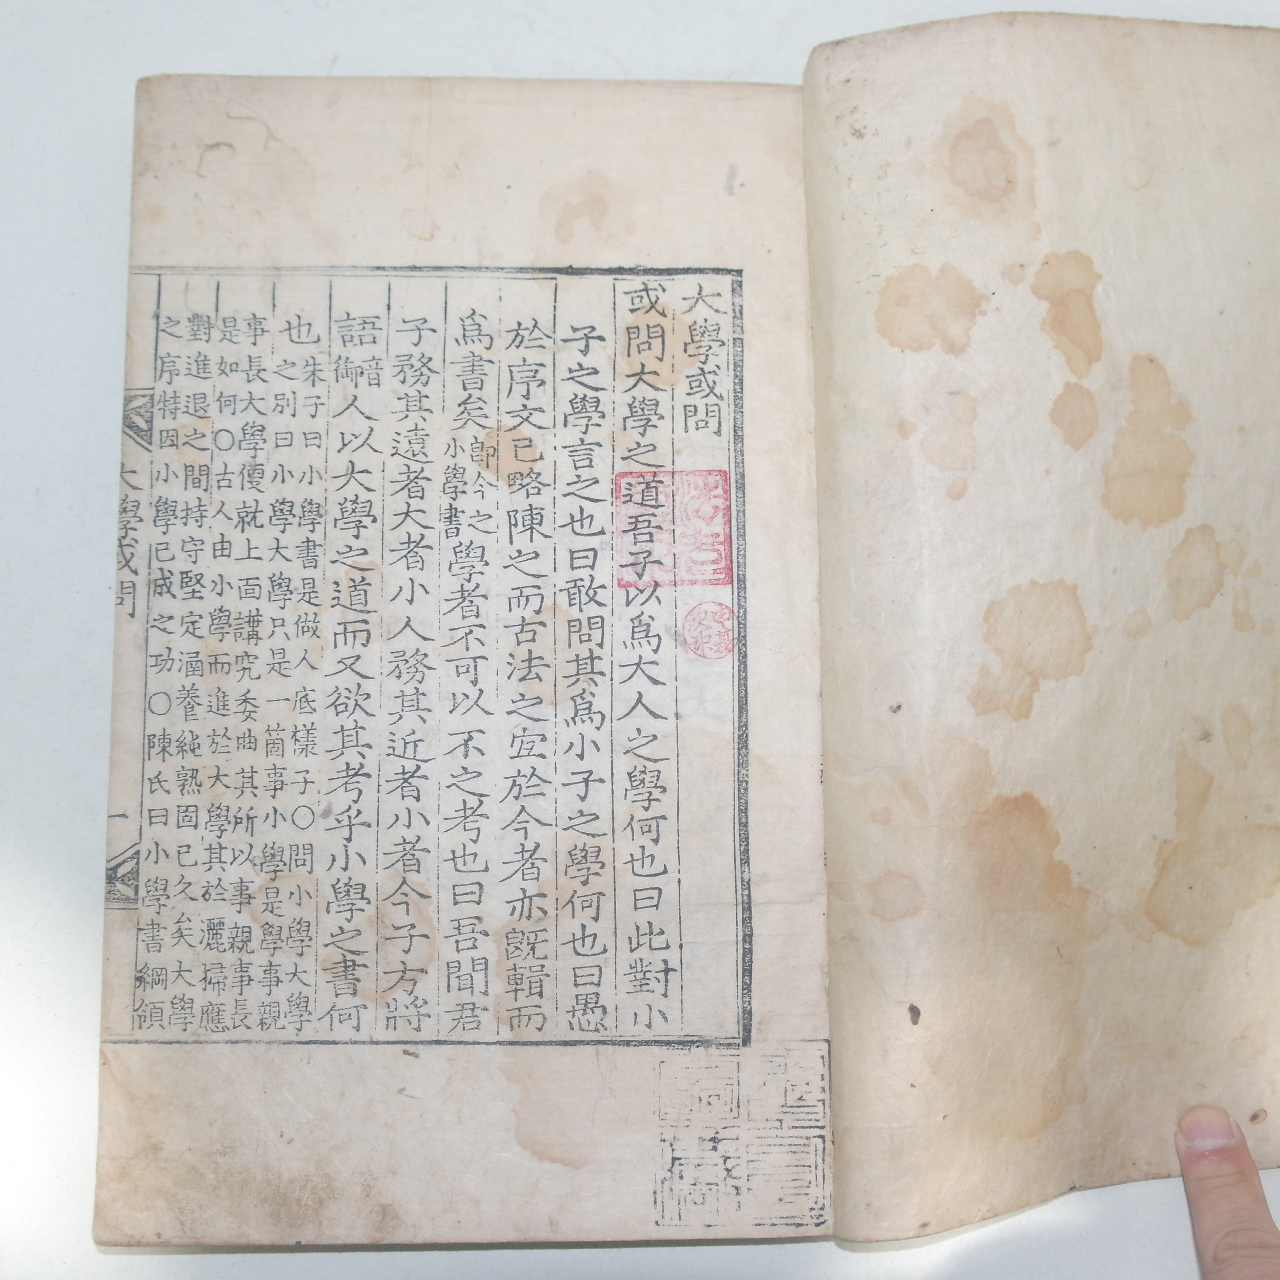 大學或問
或問大學之道吾子以爲大人之學何也曰此對小
子之學言之也曰敢問其爲小子之學何也曰愚
於序文已略陳之而古法之宜於今者亦旣輯而
爲書矣
卽今之
小學書
學者不可以不之考也曰吾聞君
子務其遠者大者小人務其近者小者今子方將
語
音
御
人以大學之道而又欲其考乎小學之書何
也
朱子曰小學書是做人底樣子〇問小學大學
之別曰小學大學只是一箇事小學是學事親
事長大學便就上面講究委曲其所以事親事長
是如何〇古人由小學而進於大學其於灑掃應
對進退之間持守堅定涵養純熟固已久矣大學
之序特因小學已成之功〇陳氏曰小學書綱領
大學或問
一